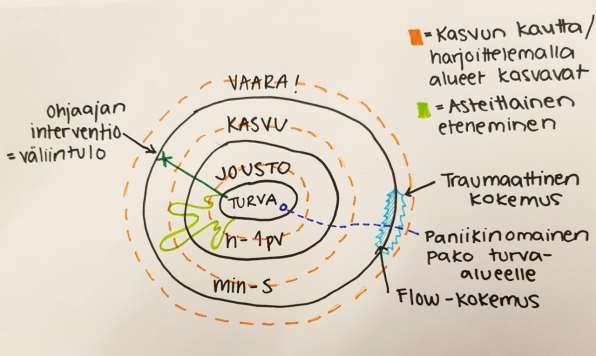 = Kasvun kautta/
harjoittelemalla
alueet kasvavat
= Asteittainen
eteneminen
VAARA!
KASVU
JOUSTO
TURVA
h-1pv
min-s
Ohjaajan
interventio
= väliintulo
Traumaattinen
kokemus
Paniikinomainen
pako turva-
alueelle
Flow-kokemus